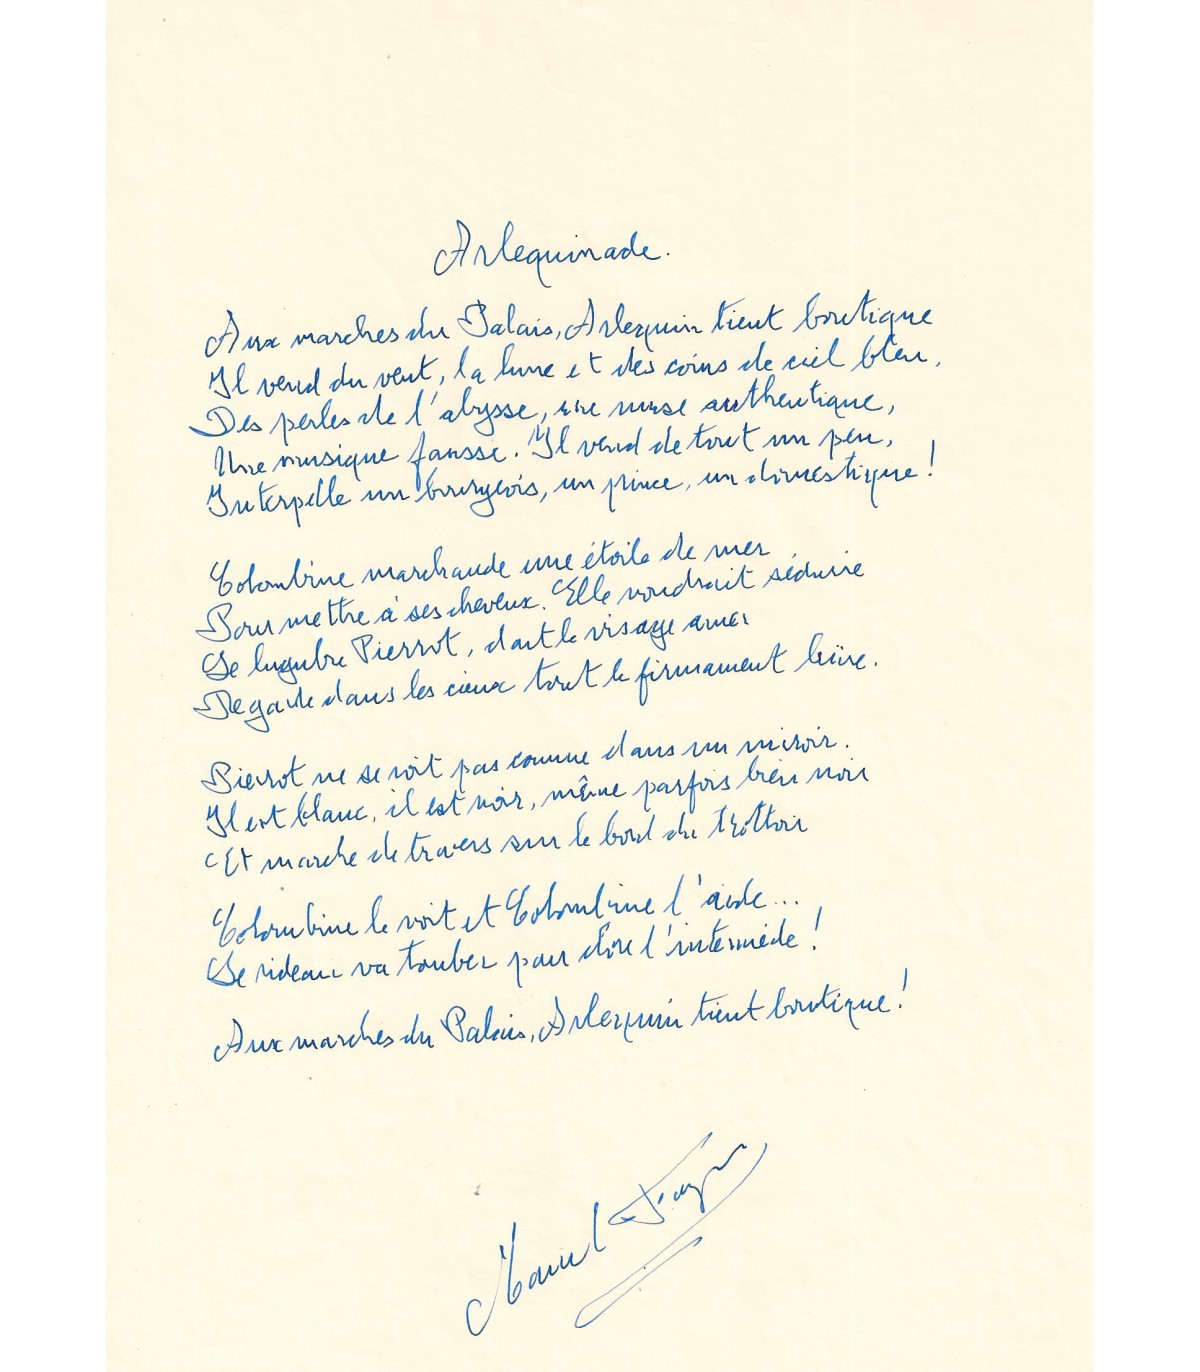 Arlequinade.
Aux marches du Palais, Arlequin tient boutique
Il vend du vent, la lune et des coins de ciel bleu,
Des perles de l'abysse, une muse authentique,
Une musique fausse. Il vend de tout un peu,
Interpelle un bourgeois, un prince, un domestique !
Colombine marchande une étoile de mer
Pour mettre à ses cheveux. Elle voudrait séduire
Le lugubre Pierrot, dont le visage amer
Regarde dans les cieux tout le firmament luire.
Pierrot ne se voit pas comme dans un miroir.
Il est blanc, il est noir, même parfois bien noir
Et marche de travers sur le bord du trottoir
Colombine le voit et Colombine l'aide...
Le rideau va tomber pour clore l'intermède !
Aux marches du Palais, Arlequin tient boutique !